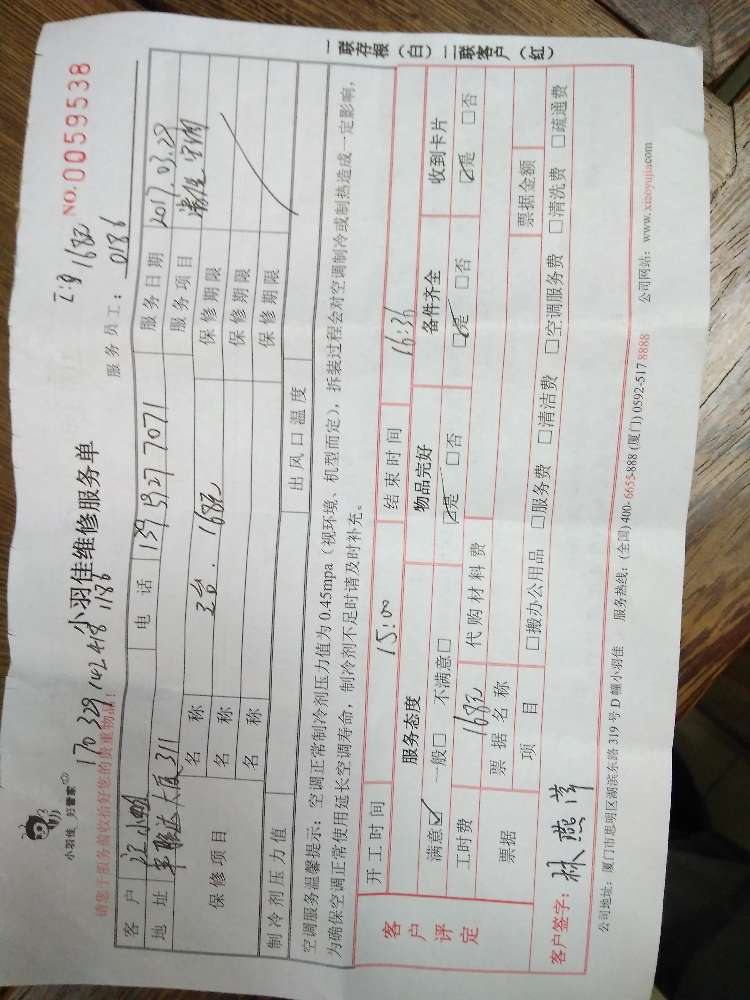 小羽佳 好管家
NO.0059538
170329142418 1186
小羽佳维修服务单
汇 168元
请您于服务前收拾好您的贵重物品!
服务员工: 0186
客户 江小姐 电话 139 5927 7071 服务日期 2017.03.29
地址 大厦311 服务项目 清洗空调
保修项目 名称 3台.168元 保修期限
名称 保修期限
名称 保修期限
制冷剂压力值 出风口温度
空调服务温馨提示:空调正常制冷剂压力值为0.45mpa(视环境、机型而定),拆装过程会对空调制冷或制热造成一定影响,
为确保空调正常使用延长空调寿命,制冷剂不足时请及时补充。
一联存根(白)二联客户(红)
客户评定
开工时间 15:00 结束时间 16:36
服务态度 物品完好 备件齐全 收到卡片
满意☑ 一般□ 不满意□ ☑是 □否 ☑是 □否 ☑是 □否
工时费 168元 代购材料费
票据 票据名称 票据金额
项目 □搬办公用品 □服务费 □清洁费 □空调服务费 □清洗费 □疏通费
客户签字: 林燕萍
公司地址:厦门市思明区湖滨东路319号D幢小羽佳 服务热线:(全国)400-6655-888 (厦门)0592-517 8888 公司网站:www.xiaoyujia.com